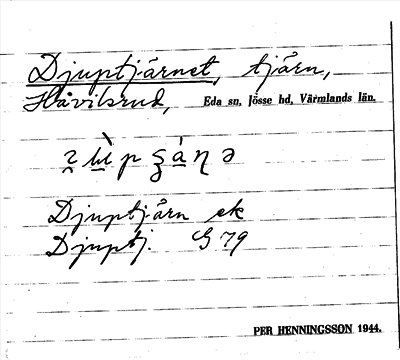 Djuptjärnet, tjärn,
Håvilsrud, Eda sn, Jösse hd, Värmlands län.
Djuptjärn ek
Djuptj. G 79
PER HENNINGSSON 1944.